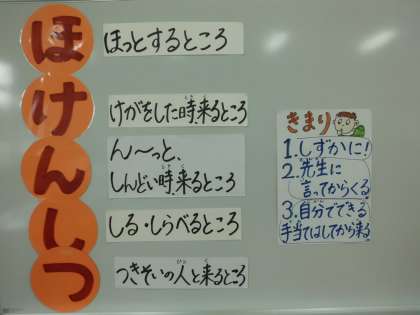 ほけんしつ
ほっとするところ
けがをした時来るところ
ん〜っと、
しんどい時来るところ
しる・しらべるところ
つきそいの人と来るところ
きまり
1.しずかに!
2.先生に
言ってからくる
3.自分でできる
手当てはしてから来る